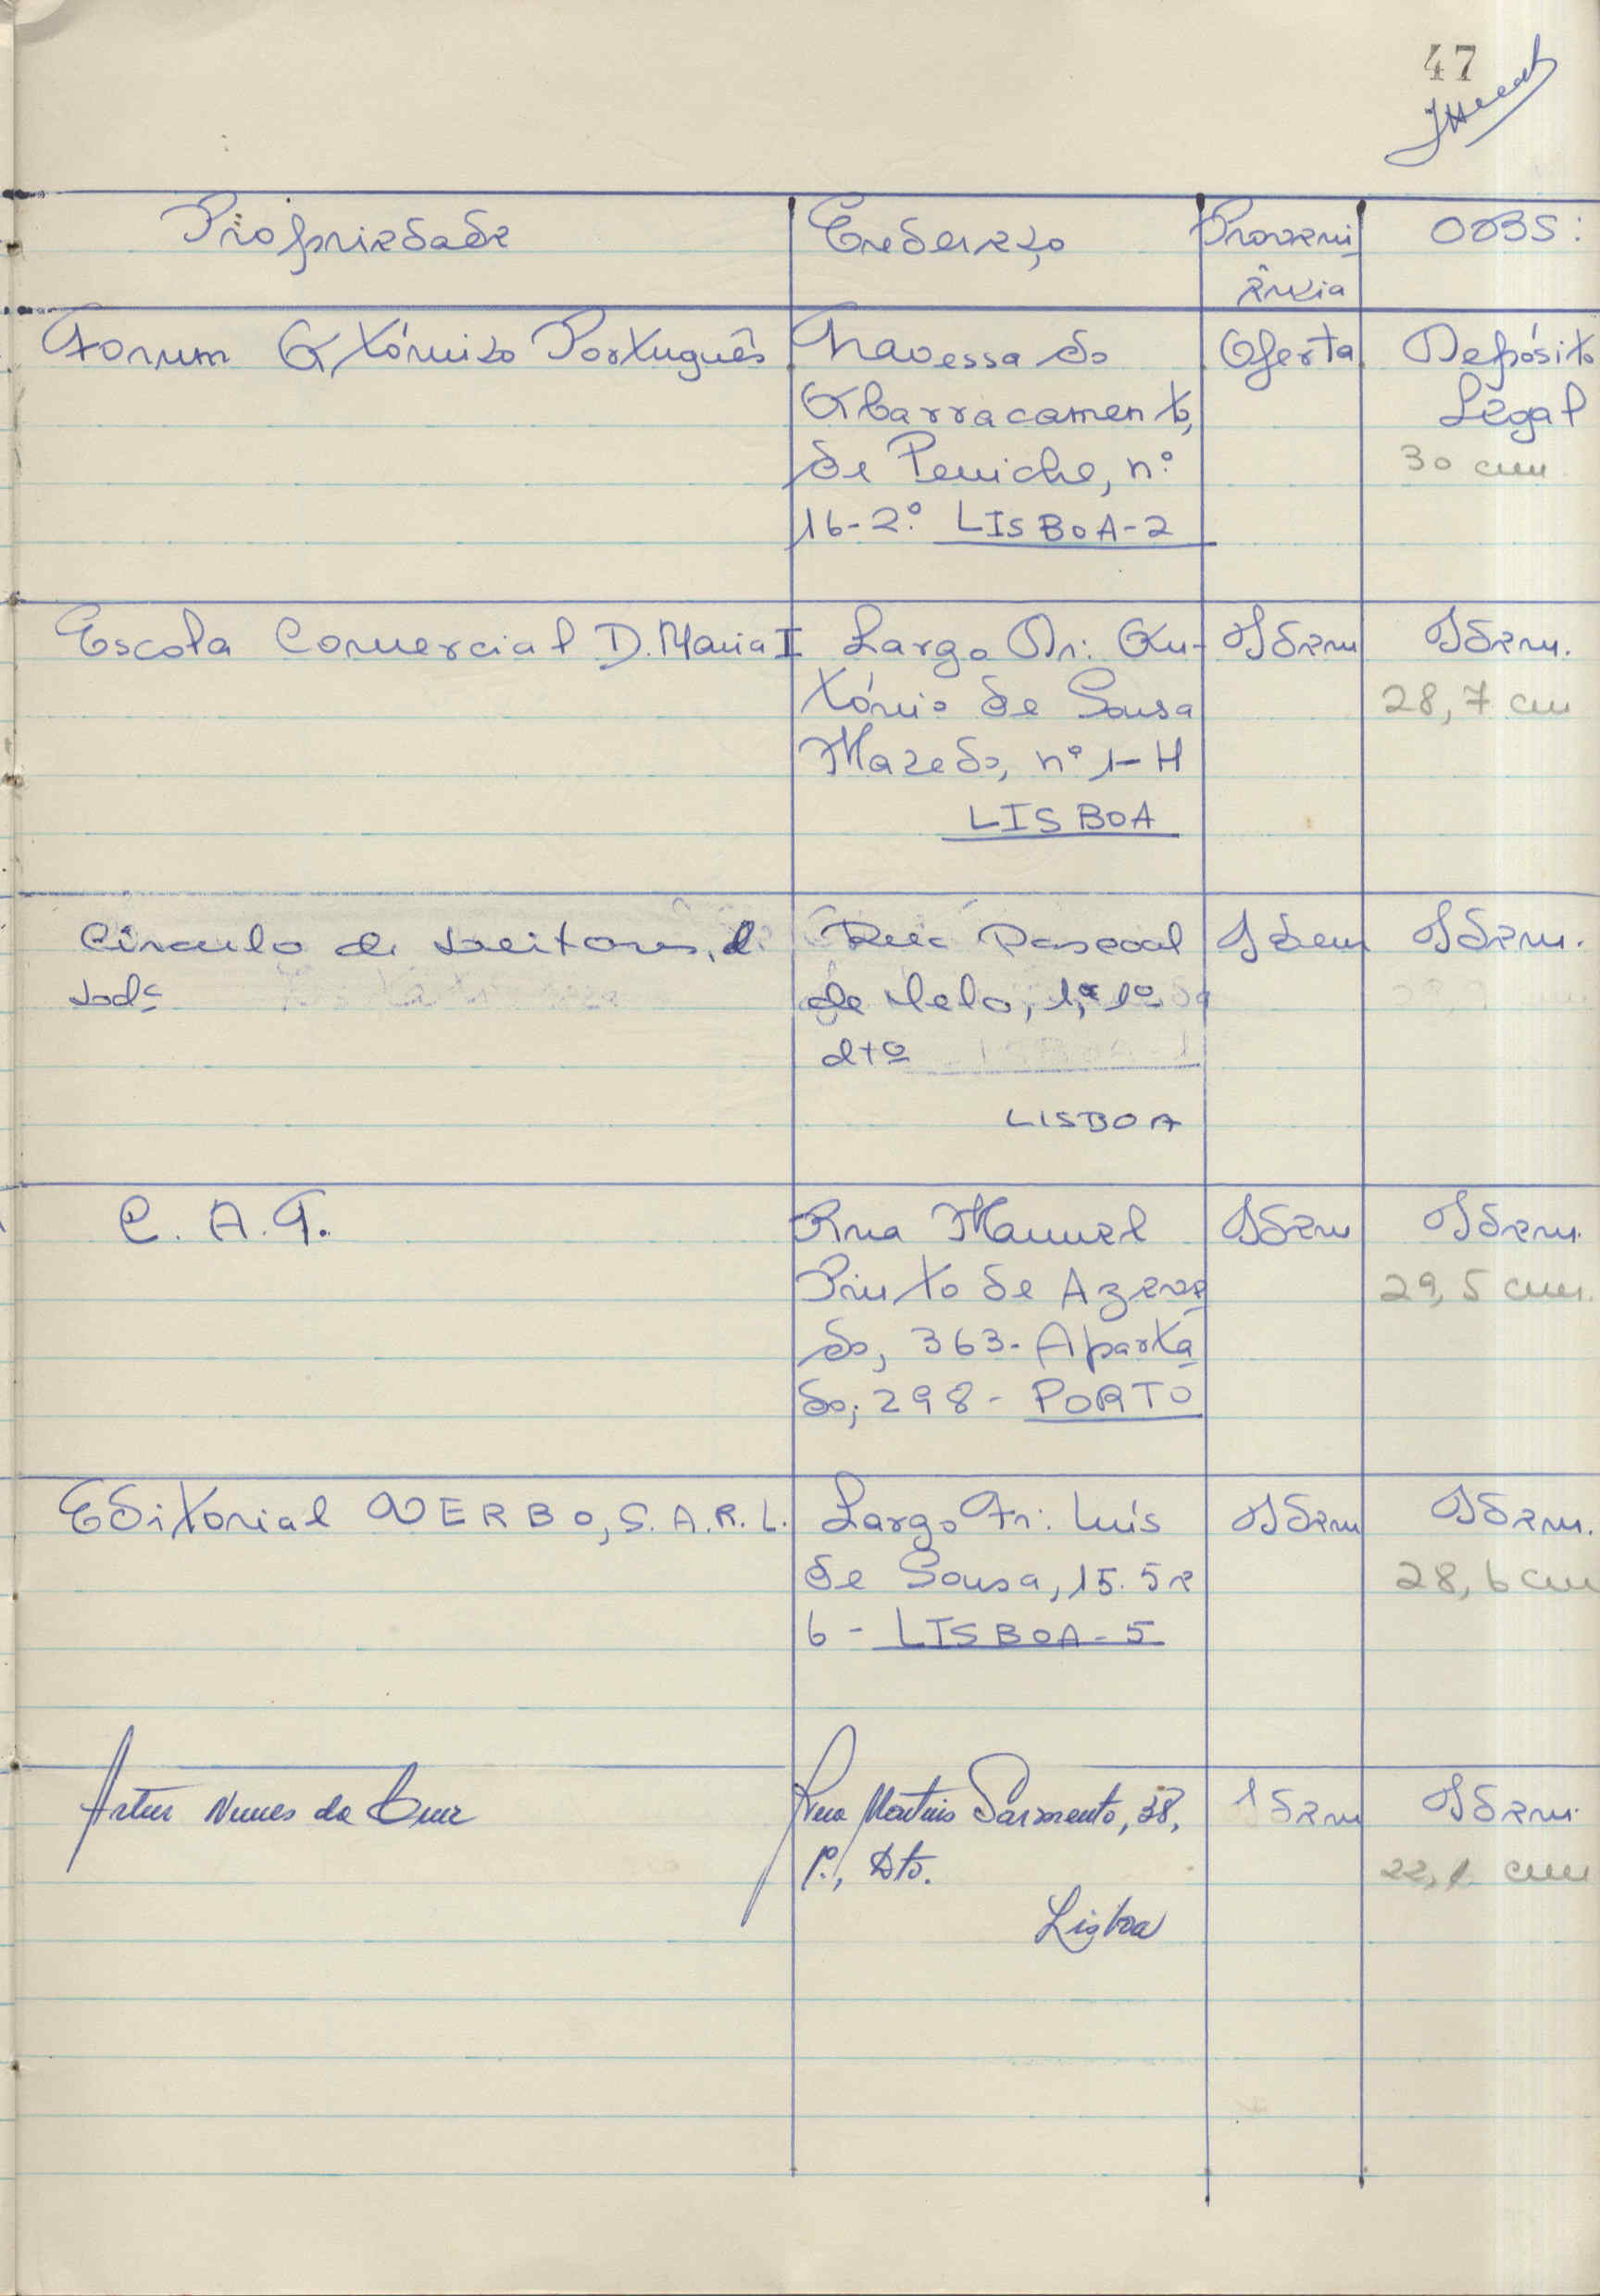 47
Propriedade Endereço Proveni OBS:
ência
Forum Atómico Português Travessa do Oferta Depósito
Abarracamento, Legal
de Peniche, nº 30 cm
16-2º LISBOA-2
Escola Comercial D. Maria I Largo Dr: An- Idem Idem.
tónio de Sousa 28,7 cm
Macedo, nº 1-H
LISBOA
Círculo de Leitores, Rua Pascoal Idem Idem.
Ldª de Melo, 1º
dtº
LISBOA
C. A. T. Rua Manuel Idem Idem.
Pinto de Azeve 29,5 cm.
do, 363- Aparta
do, 298- PORTO
Editorial VERBO, S.A.R.L. Largo Fr: Luís Idem Idem.
de Sousa, 15. 5 e 28,6 cm
6- LISBOA-5
Artur Nunes da Cruz Rua Martins Sarmento, 38, Idem Idem.
1º., Dto. 22, cm
Lisboa